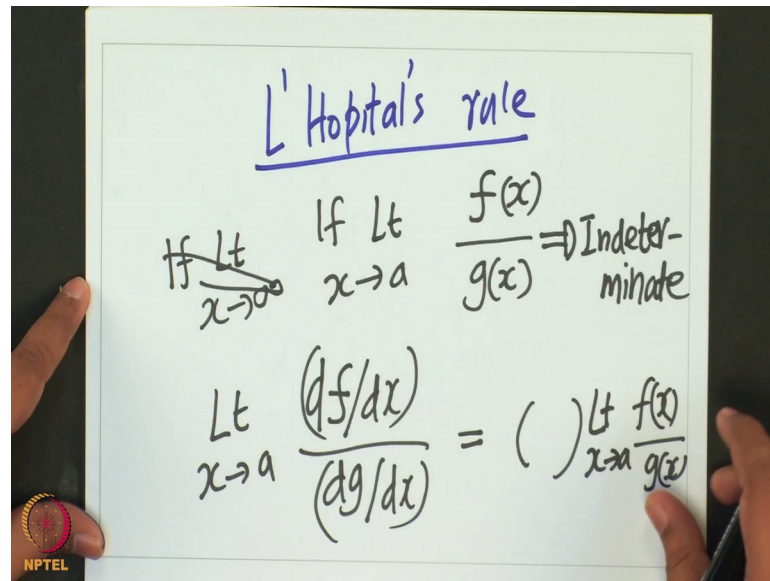 L'Hopital's rule
If Lt
x→a
If Lt f(x)/g(x) ⇒ Indeter-
x→a minate
Lt (df/dx)/(dg/dx) = ( ) Lt f(x)/g(x)
x→a x→a
NPTEL